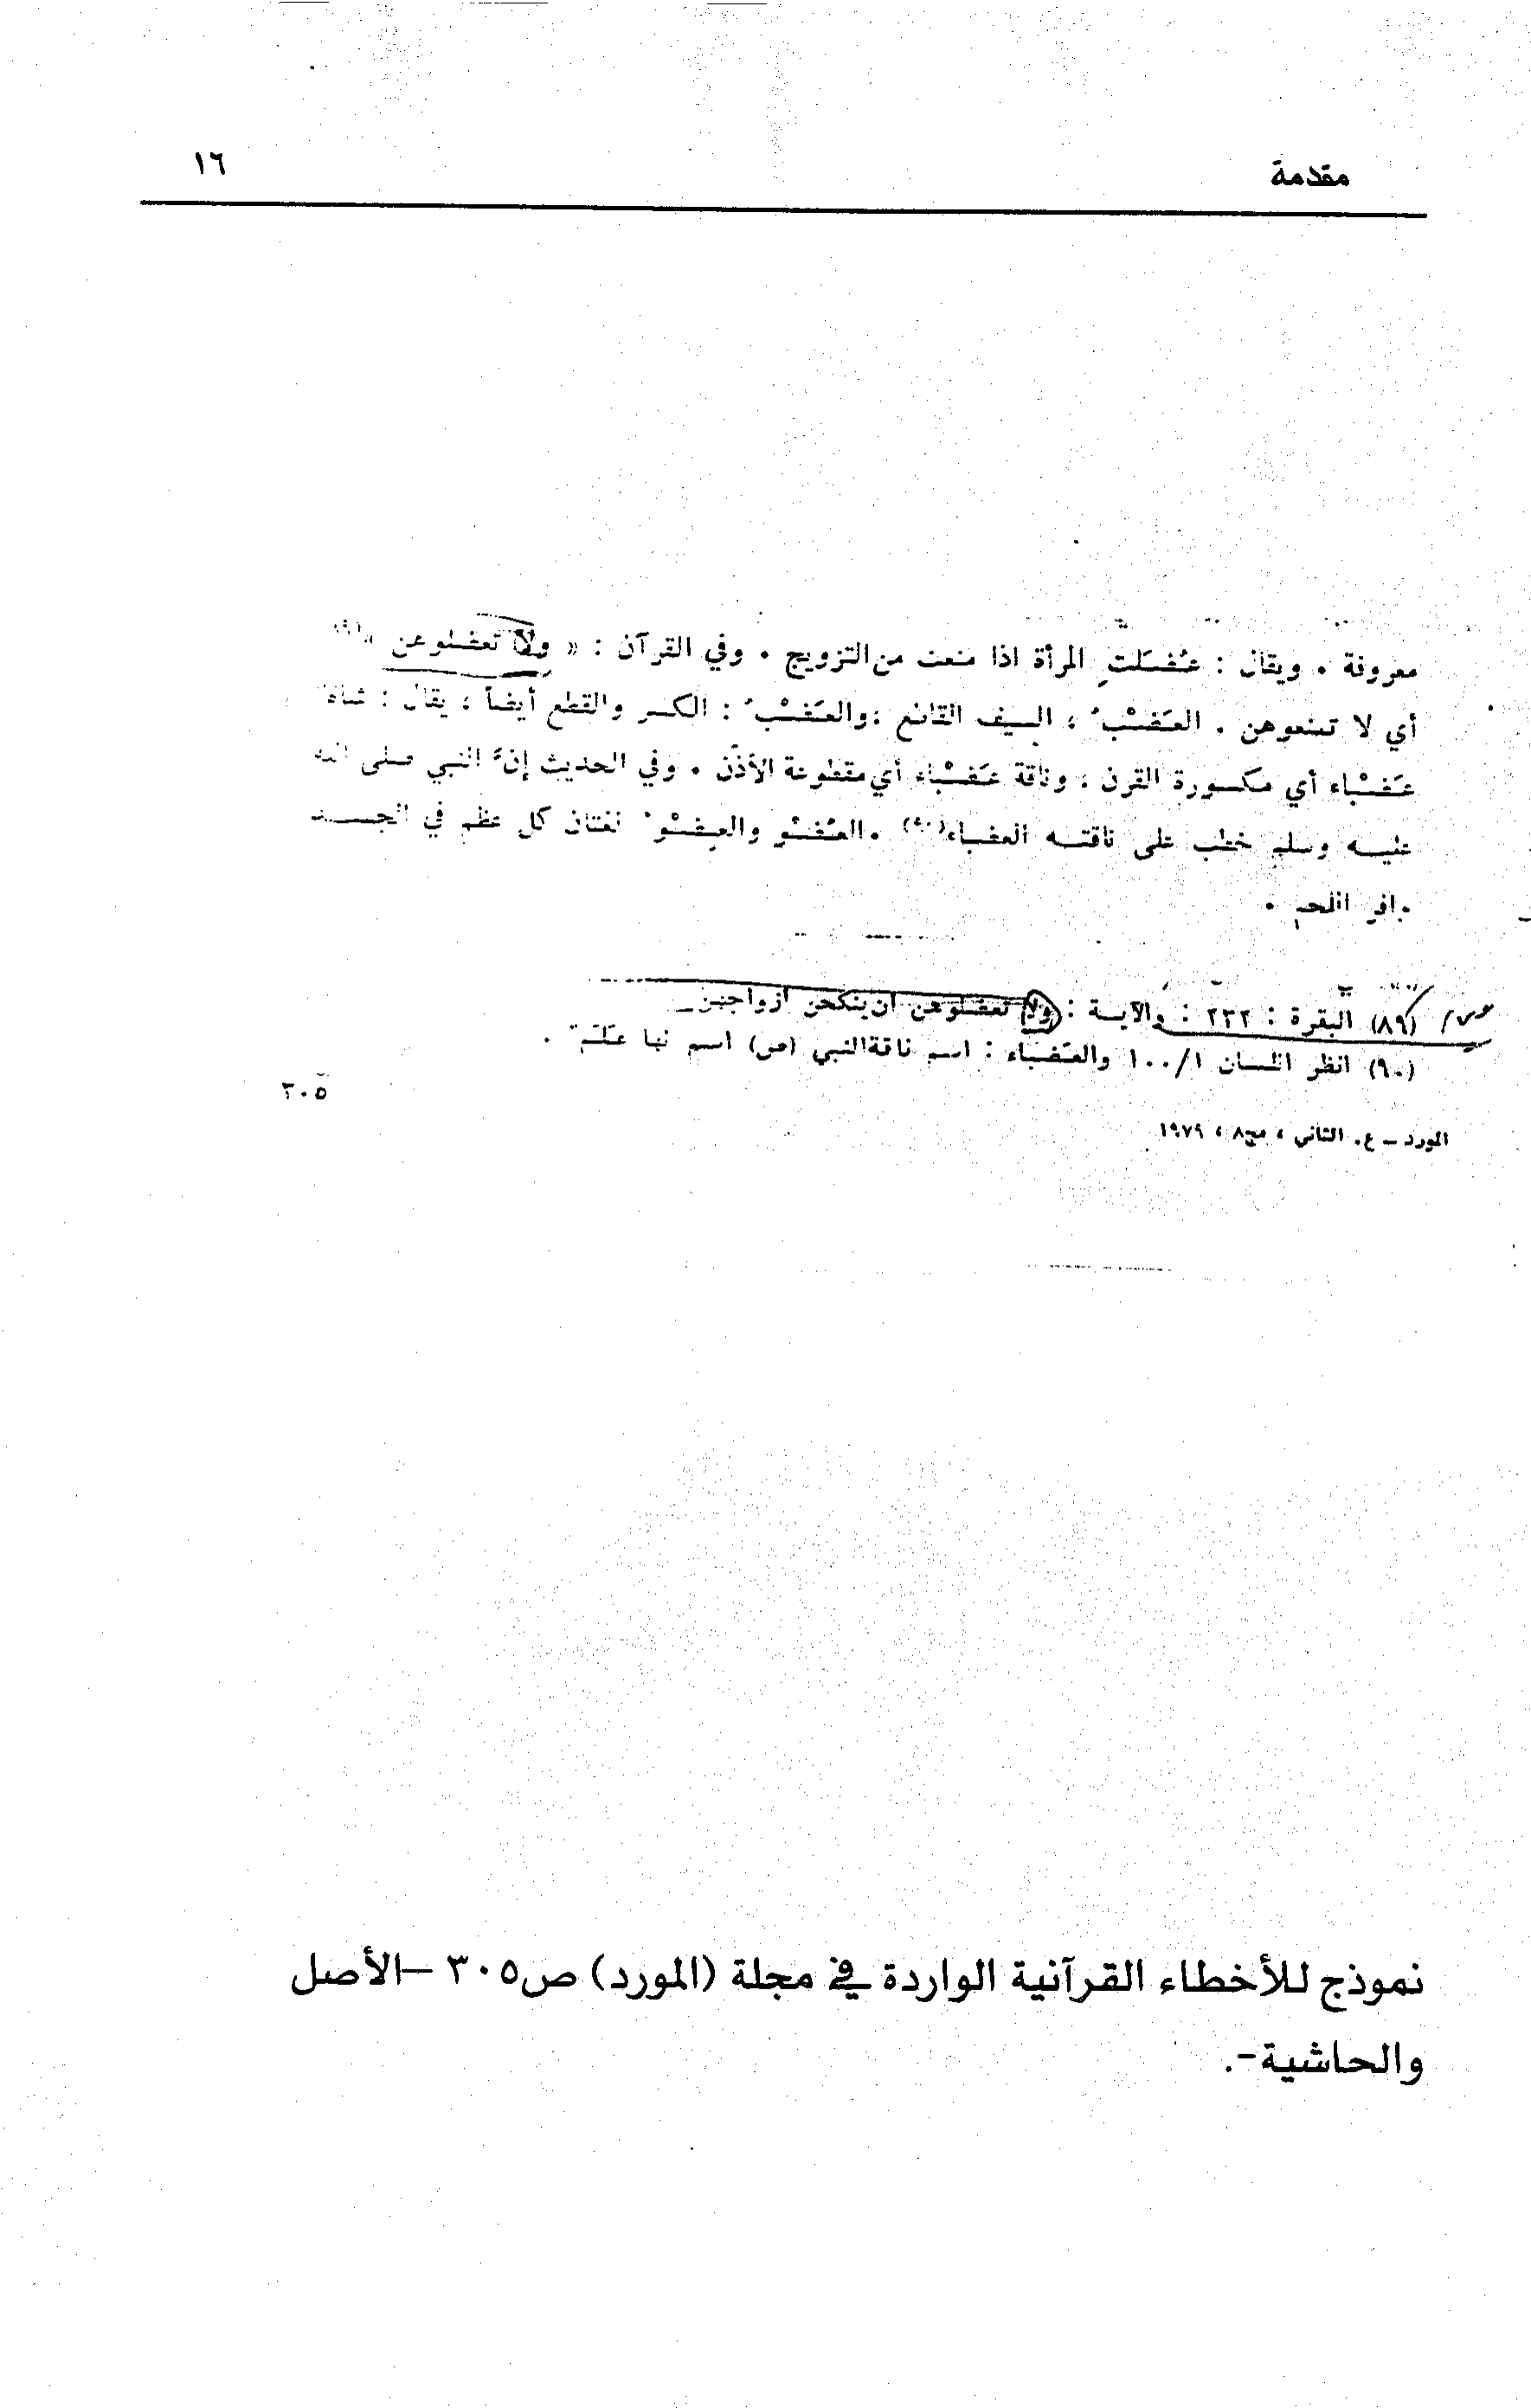 مقدمة ١٦
معروفة . ويقال : عُضِلَتِ المرأة اذا منعت من التزويج . وفي القرآن : « ولا تعضلوهن »
أي لا تمنعوهن . العَضْبُ ، السيف القاطع ; والعَضْبُ : الكسر والقطع أيضاً ; يقال : شاة
عَضْباء أي مكسورة القرن ; وناقة عَضْباء أي مقطوعة الأذن . وفي الحديث إنّ النبي صلى الله
عليه وسلم خطب على ناقته العضباء(٩٠) . العُضْو والعِضْو لغتان كل عظم في الجسد
وافر اللحم .
(٨٩) البقرة : ٢٣٢ : والآية : ولا تعضلوهن ان ينكحن ازواجهن ـ
(٩٠) انظر اللسان ١/١٠٠ والعَضباء : اسم ناقة النبي (ص) اسم لها عَلَم .
٣٠٥
المورد – ع. الثاني ، مج٨ ، ١٩٧٩
نموذج للأخطاء القرآنية الواردة في مجلة (المورد) ص٣٠٥ –الأصل
والحاشية-.